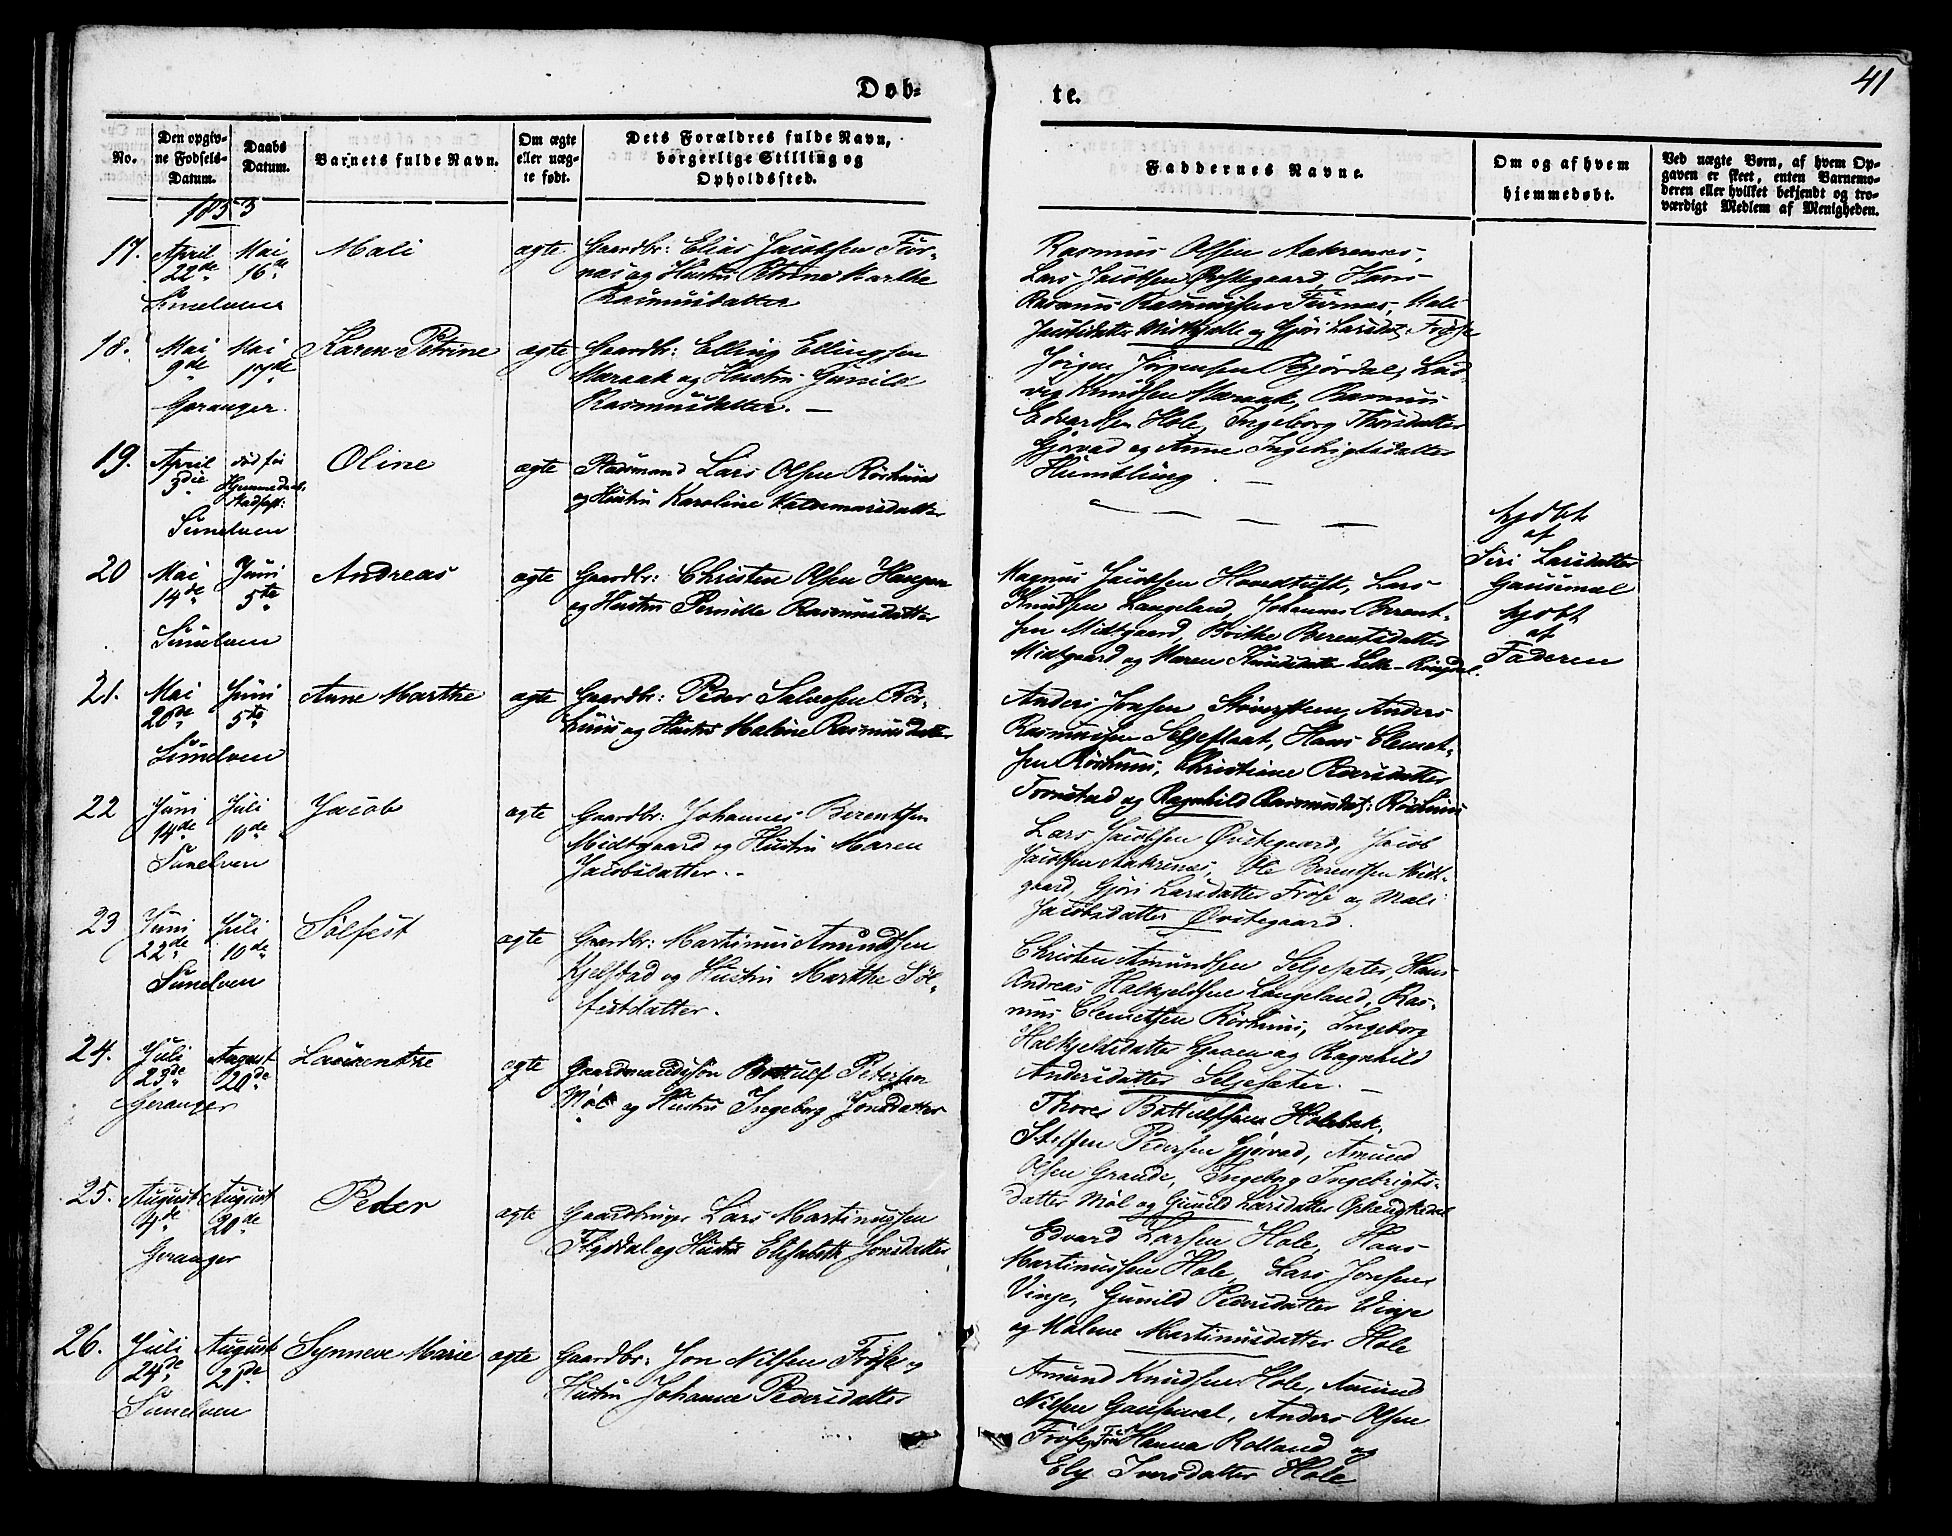 41
Døb-
te.
No.
Den opgiv-
ne Fødsels-
Datum.
Daabs
Datum.
Barnets fulde Navn.
Om ægte
eller uæg-
te født.
Dets Forældres fulde Navn,
borgerlige Stilling og
Opholdssted.
Faddernes Navne.
Om og af hvem
hjemmedøbt.
Ved uægte Børn, af hvem Op-
gaven er skeet, enten Barnemo-
deren eller hvilket bekjendt og tro-
værdigt Medlem af Menigheden.
1853
17.
April
22de
Sunelven
Mai
16de
Mali
ægte
Gaardbr: Elias Jacobsen Fur-
næs og Hustru Petrine Marthe
Rasmusdatter
Rasmus Olsen Aakrenæs,
Lars Jacobsen Østegaard, Hans
Rasmus Rasmussen Furnæs, Mali
Jacobsdatter og Gjøri Larsdat. Frøse
18.
Mai
9de
Geranger.
Mai
17de
Karen Petrine
ægte
Gaardbr: Elling Ellingsen
Maraak og Hustru Gunild
Rasmusdatter. —
Jørgen Jørgensen Bjørdal, Lud-
vig Knudsen Maraak, Rasmus
Edvardsen Hole, Ingeborg Thorsdatter
Gjørvad og Anne Ingebrigtsdatter
Humlung. —
19.
April
5die
Sunelven
død før
Hjemmedaab.
stadfest:
Oline
ægte
Lars Olsen Rørhuus
og Hustru Karoline Valdemarsdatter
— — — —
hjdbt
af
Siri Larsdatter
Gausemel
20
Mai
14de
Sunelven
Juni
5te
Andreas
ægte
Gaardbr: Christen Olsen Haugen
og Hustru Pernille Rasmusdatter
Magnus Jacobsen Hovedtuft, Lars
Knudsen Langeland, Johannes Berent-
sen Midtgaard, Berentsdatter
Midtgaard og Maren Knudsdatter Ringdal.
hjdbt
af
Faderen
21.
Mai
26de
Sunelven
Juni
5te
Anne Marthe
ægte
Gaardbr: Peder Salvesen Rør-
huus og Hustru Malene Rasmusdatter
Anders Jonsen Anders
Rasmussen Seljeflaat, Hans Clemet-
sen Rørhuus, Christiane Pedersdatter
Tronstad og Ragnhild Rasmusdat: Rørhuus
22
Juni
14de
Sunelven
Juli
10de
Jacob
ægte
Gaardbr: Johannes Berentsen
Midtgaard og Hustru Maren
Jacobsdatter. -
Lars Jacobsen Østegaard, Jacob
Jacobsen Aakrenæs, Ole Berentsen Midt-
gaard, Gjøri Larsdatter Frøse og Mali
Jacobsdatter Østegaard.
23
Juni
22de
Sunelven
Juli
10de
Sølfest
ægte
Gaardbr: Martinus Amundsen
Kjelstad og Hustru Marthe Søl-
festdatter.
Christen Amundsen Seljesæter, Hans
Andreas Halkjeldsen Langeland, Ras-
mus Clemetsen Rørhuus, Ingeborg
Halkjeldsdatter og Ragnhild
Andersdatter Seljesæter. —
24.
Juli
25de
Geranger
August
20de
Laurentze
ægte
Gaardmandssøn Bottulf Petersen
Møl og Hustru Ingeborg Jonsdatter
Thore Bottulfsen Holebak,
Steffen Pedersen Gjørvad, Amund
Olsen Grande, Ingeborg Ingebrigts-
datter Møl og Gunild Larsdatter Opheugskedal
25.
August
4de
Geranger
August
20de
Peder
ægte
Gaardbruger Lars Martinussen
Flydal og Hustru Elisabeth Jonsdatter
Edvard Larsen Hole, Hans
Martinussen Hole, Lars Jonsen
Vinje, Gunild Pedersdatter Vinje
og Malene Martinusdatter Hole
26.
Juli
24de
Sunelven
August
21de
Synneve Marie
ægte
Gaardbr: Jon Nilsen Frøse og
Hustru Johanne Pedersdatter
Amund Knudsen Hole, Amund
Nilsen Gausemel, Anders Olsen
Frøse, Hanna Rolland og
Ely Iversdatter Hole